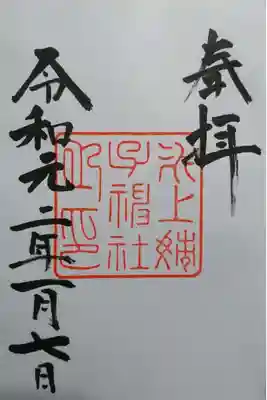 奉拝
氷上姉
子神社
之印
令和元二年一月七日